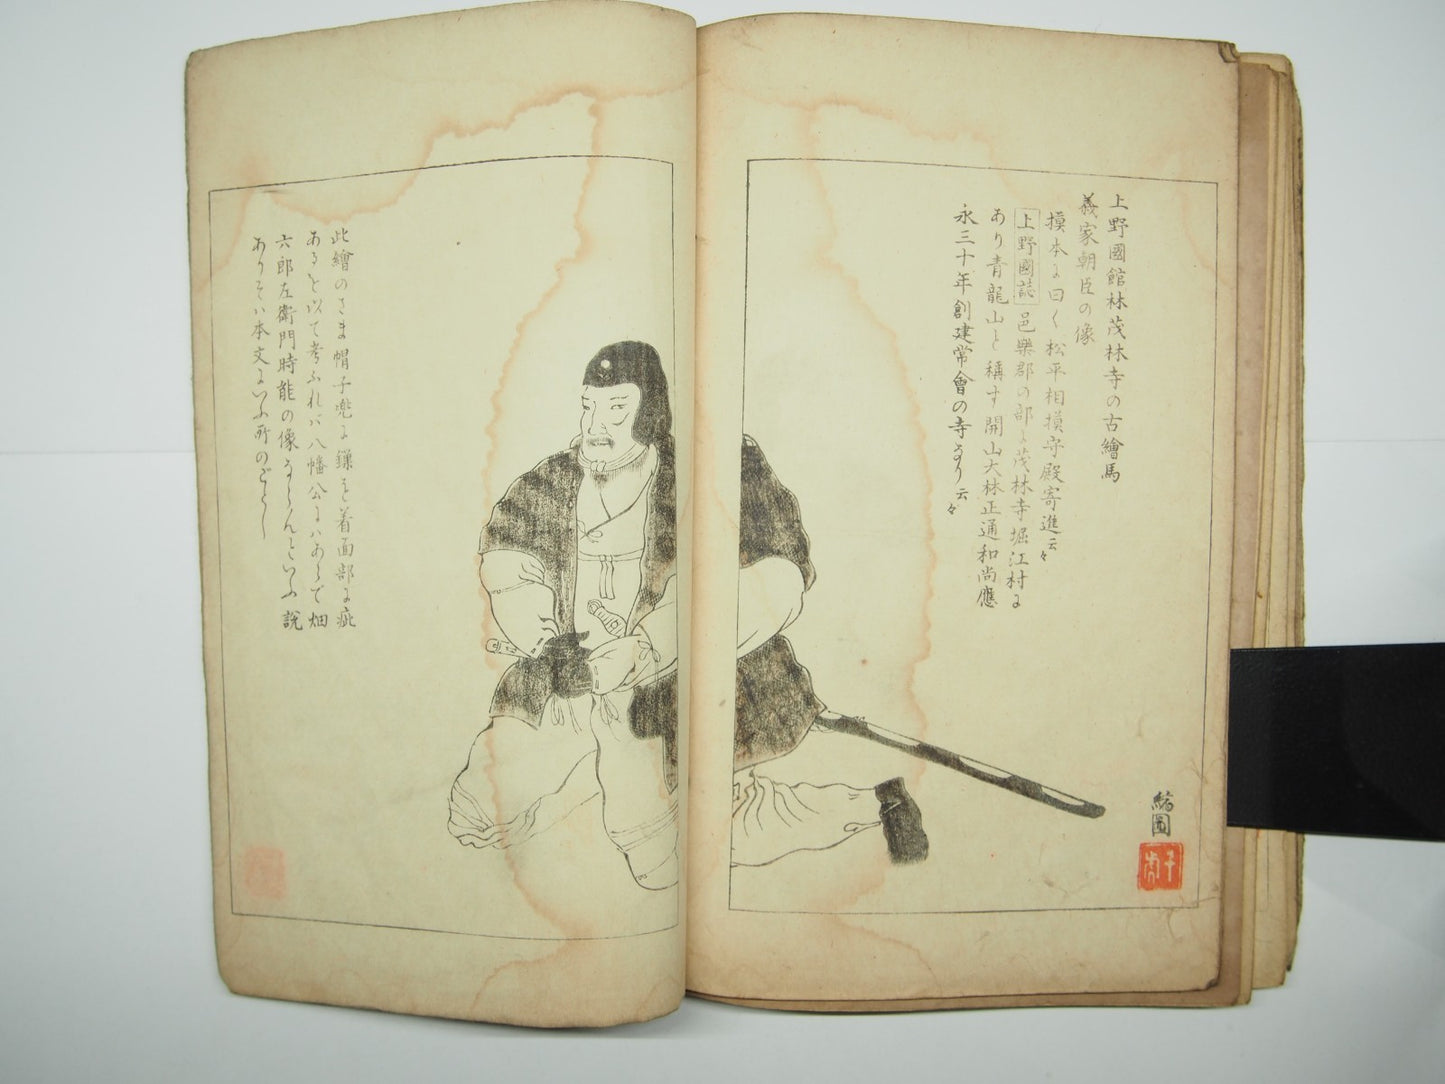 上野國館林茂林寺の古繪馬
義家朝臣の像
摸本に曰く松平相摸守殿寄進云々
上野國誌邑樂郡の部に茂林寺堀江村に
あり青龍山と稱す開山大林正通和尚應
永三十年創建常會の寺なり云々
縮圖
此繪のさま帽子兜に鎌を着面部に疵
あるを以て考ふれば八幡公にハあらで畑
六郎左衛門時能の像ならんといふ説
ありそハ本文にいふ所のごとし